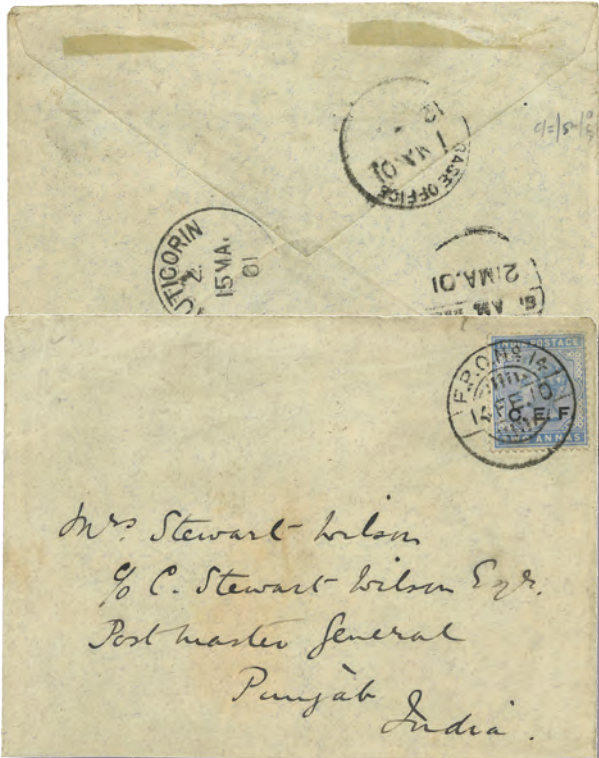 BASE OFFICE
1 MA.01
12
TUTICORIN
15 MA.
01
21 MA.01
POSTAGE
F.P.O. No. 14
14 FE.
C. E. F
ANNAS
Mrs Stewart Wilson
c/o C. Stewart Wilson Esqr.
Postmaster General
Punjab
India.